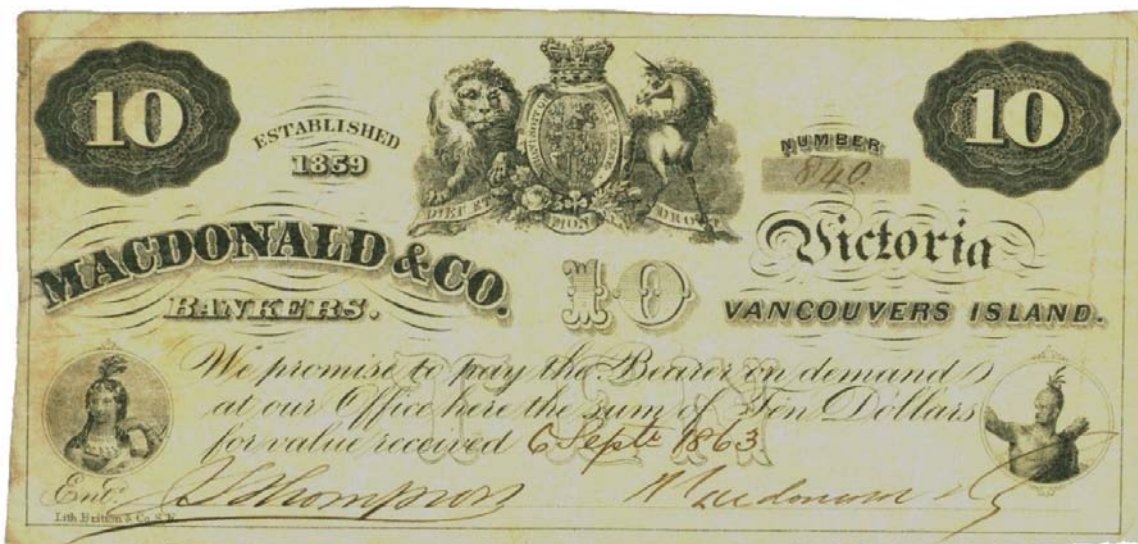 10
10
ESTABLISHED
1859
NUMBER
8140.
HONI SOIT QUI MAL Y PENSE
DIEU ET MON DROIT
MACDONALD & CO.
BANKERS.
10
Victoria
VANCOUVERS ISLAND.
TEN
We promise to pay the Bearer on demand
at our Office here the sum of Ten Dollars
for value received 6 Septr 1863
Entd. Thompson
Macdonald & Co
Lith Britton & Co S.F.